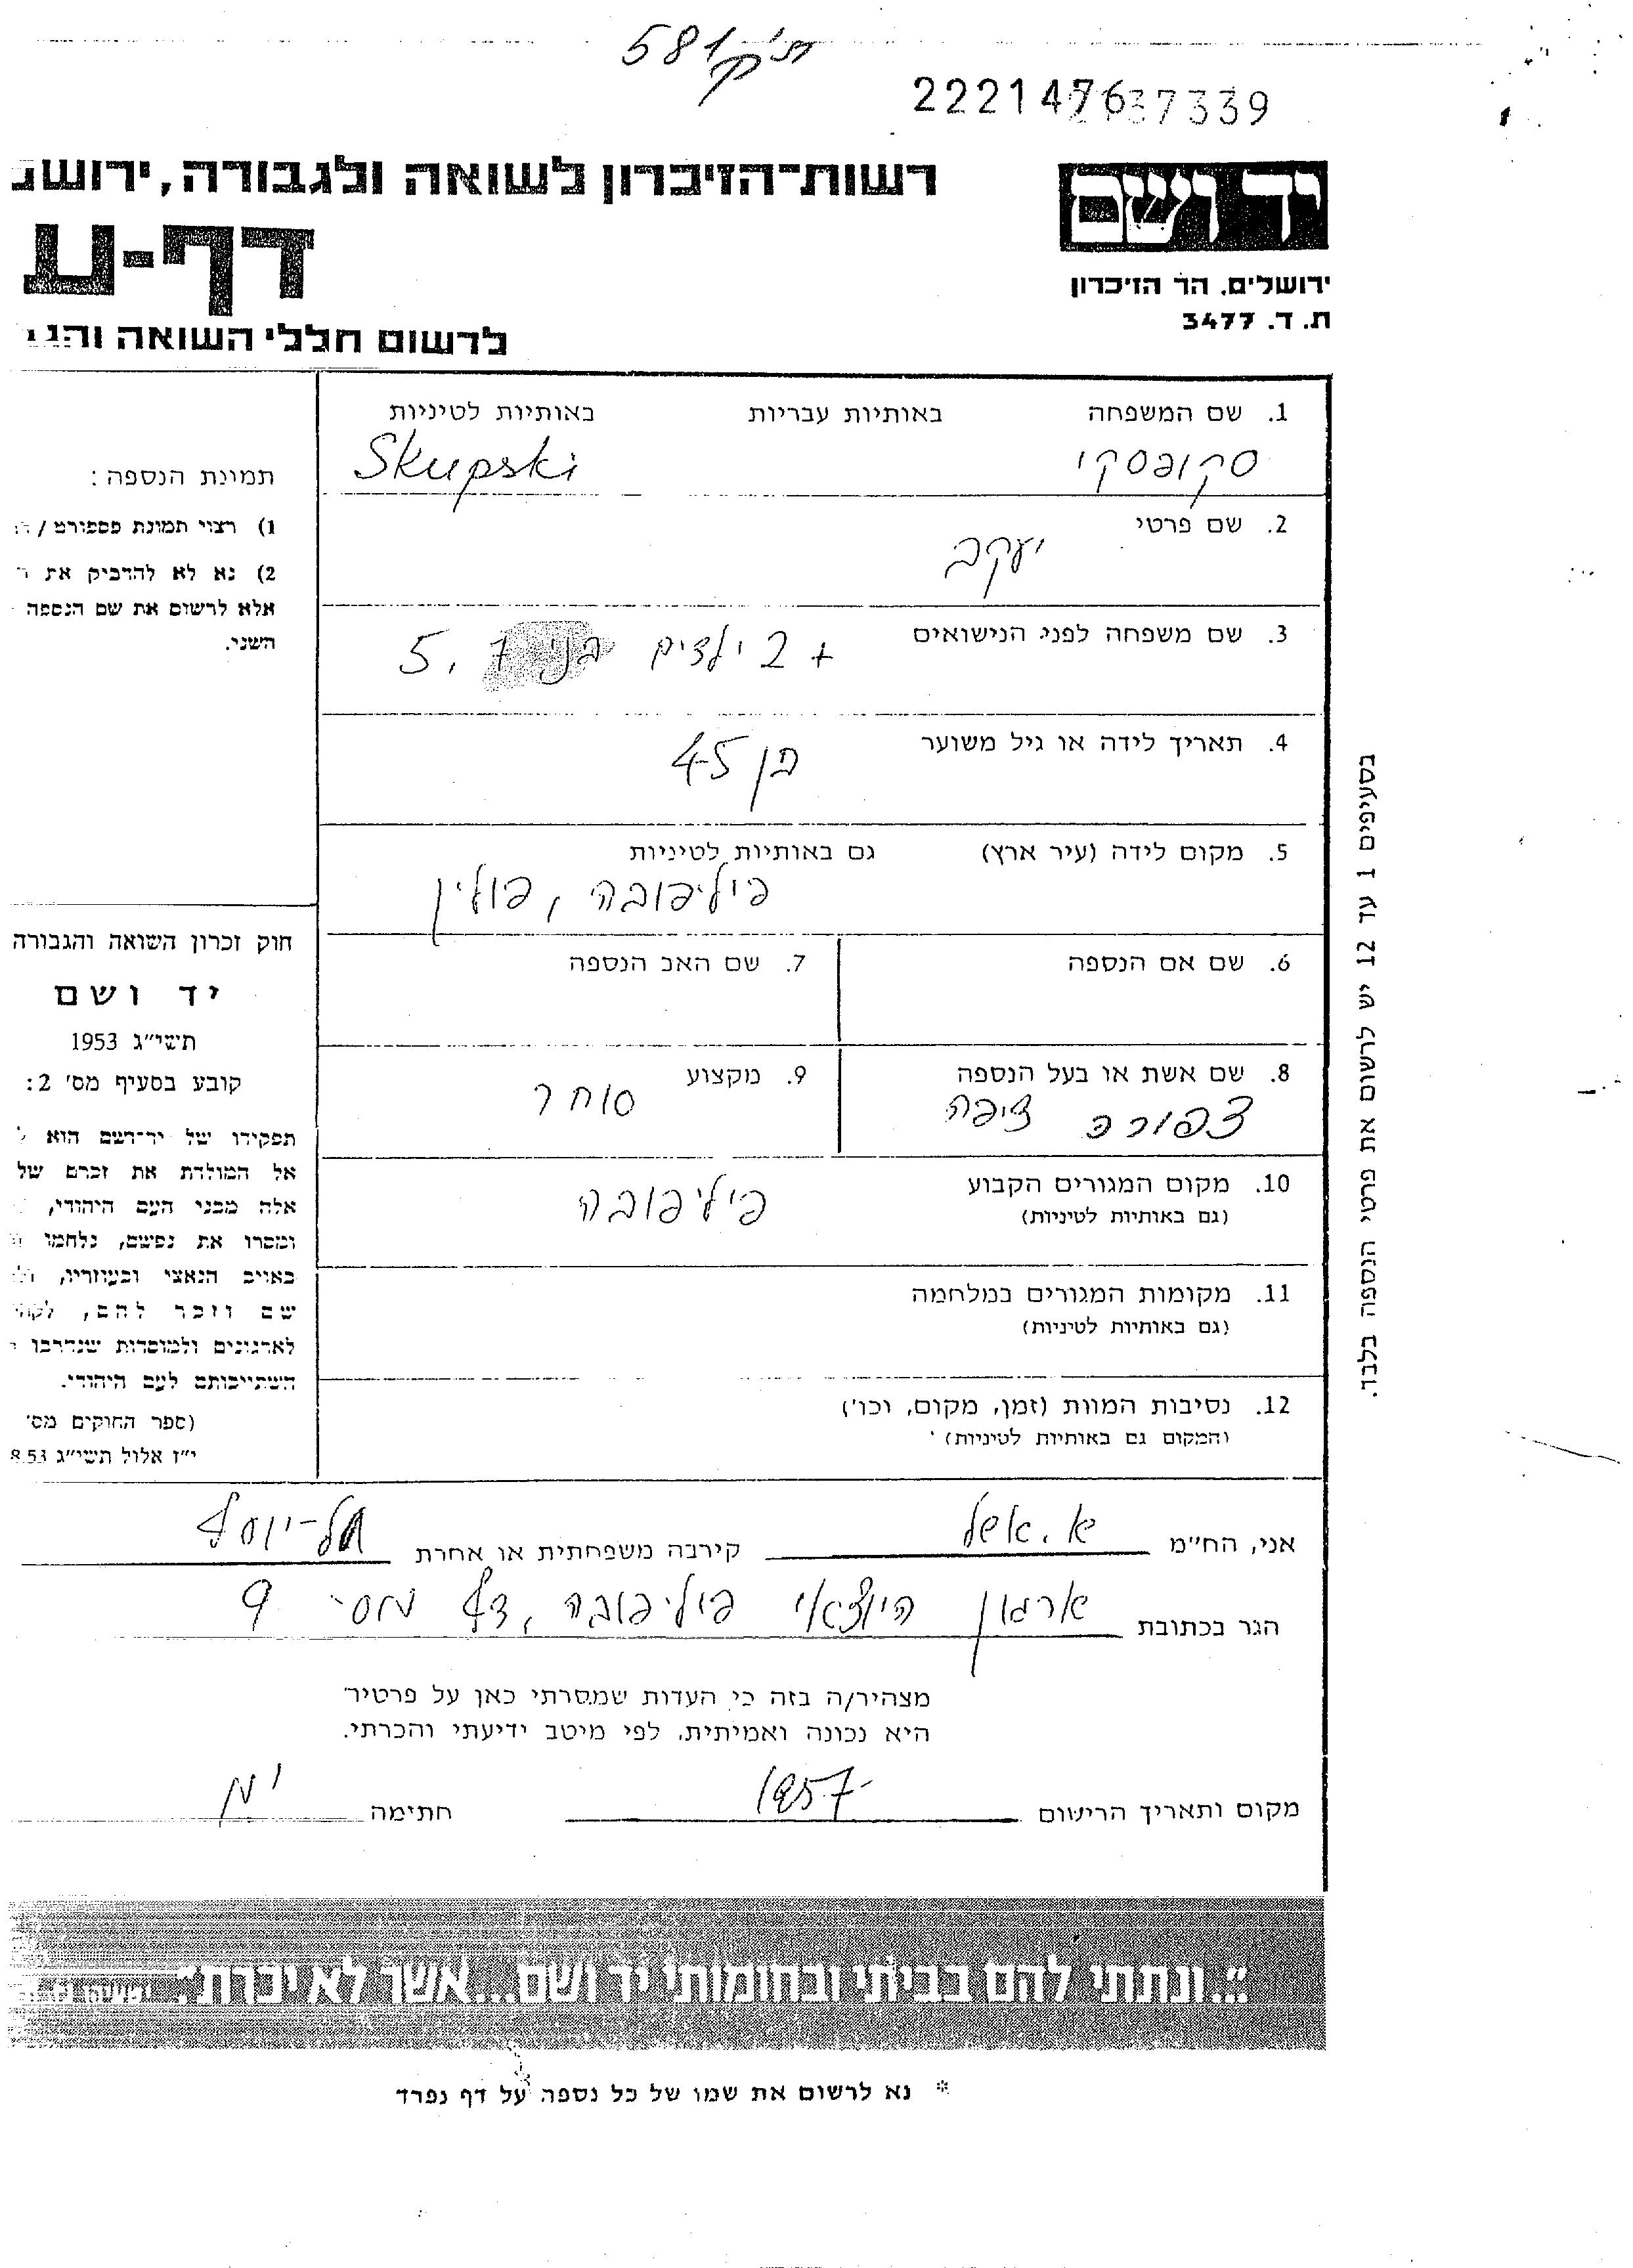 581
2221476
337339
רשות־הזיכרון לשואה ולגבורה, ירוש
יד ושם
דף-ע
ירושלים, הר הזיכרון
ת. ד. 3477
לרשום חללי השואה והג
1. שם המשפחה באותיות עבריות באותיות לטיניות
סקופסקי Skupski
2. שם פרטי
יעקב
3. שם משפחה לפני הנישואים
+ 2 ילדים בני 7, 5
4. תאריך לידה או גיל משוער
בן 45
5. מקום לידה (עיר ארץ) גם באותיות לטיניות
פיליפובה, פולין
6. שם אם הנספה
7. שם האב הנספה
8. שם אשת או בעל הנספה
צפורה ציפה
9. מקצוע
סוחר
10. מקום המגורים הקבוע
(גם באותיות לטיניות)
פיליפובה
11. מקומות המגורים במלחמה
(גם באותיות לטיניות)
12. נסיבות המוות (זמן, מקום, וכו')
(המקום גם באותיות לטיניות)
תמונת הנספה:
1) רצוי תמונת פספורט /
2) נא לא להדביק את
אלא לרשום את שם הנספה
השני.
חוק זכרון השואה והגבורה
יד ושם
תשי"ג 1953
קובע בסעיף מס' 2:
תפקידו של יד־ושם הוא
אל המולדת את זכרם של
אלה מבני העם היהודי,
ומסרו את נפשם, נלחמו
באויב הנאצי ובעוזריו,
שם וזכר להם,
לארגונים ולמוסדות שנחרבו
השתייכותם לעם היהודי.
(ספר החוקים מס'
י"ז אלול תשי"ג 8.53
בסעיפים 1 עד 12 יש לרשום את פרטי הנספה בלבד.
אני, הח"מ א. אשל קירבה משפחתית או אחרת תל-יוסף
הגר בכתובת ארגון היוצאי פיליפובה, דף מס' 9
מצהיר/ה בזה כי העדות שמסרתי כאן על פרטיה
היא נכונה ואמיתית, לפי מיטב ידיעתי והכרתי.
מקום ותאריך הרישום 1957 חתימה
"...ונתתי להם בביתי ובחומותי יד ושם...אשר לא יכרת".
* נא לרשום את שמו של כל נספה על דף נפרד